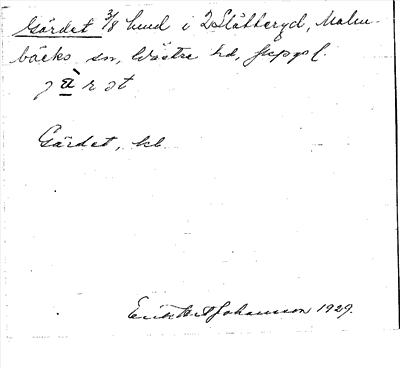 Gärdet 3/8 hmd i 2 Slätteryd, Malm-
bäcks sn, Västra hd, Jkpgs l.
Gärdet, hb
Johansson 1929.